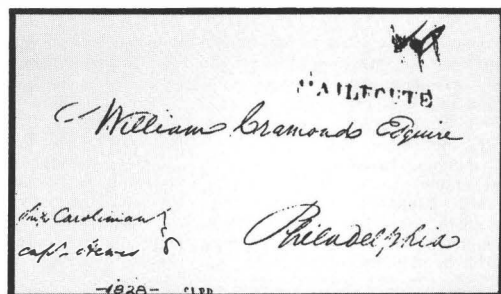 MAILROUTE
William Cramonds Esquire
Ship Carolinian
capt. Hewes
Philadelphia
-1828-